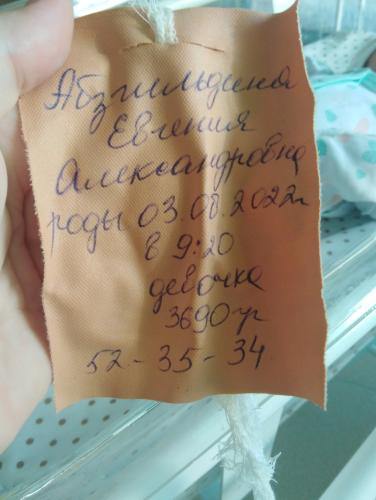 Абзгильдина
Евгения
Александровна
роды 03.08.2022г
в 9:20
девочка
3690 гр
52-35-34